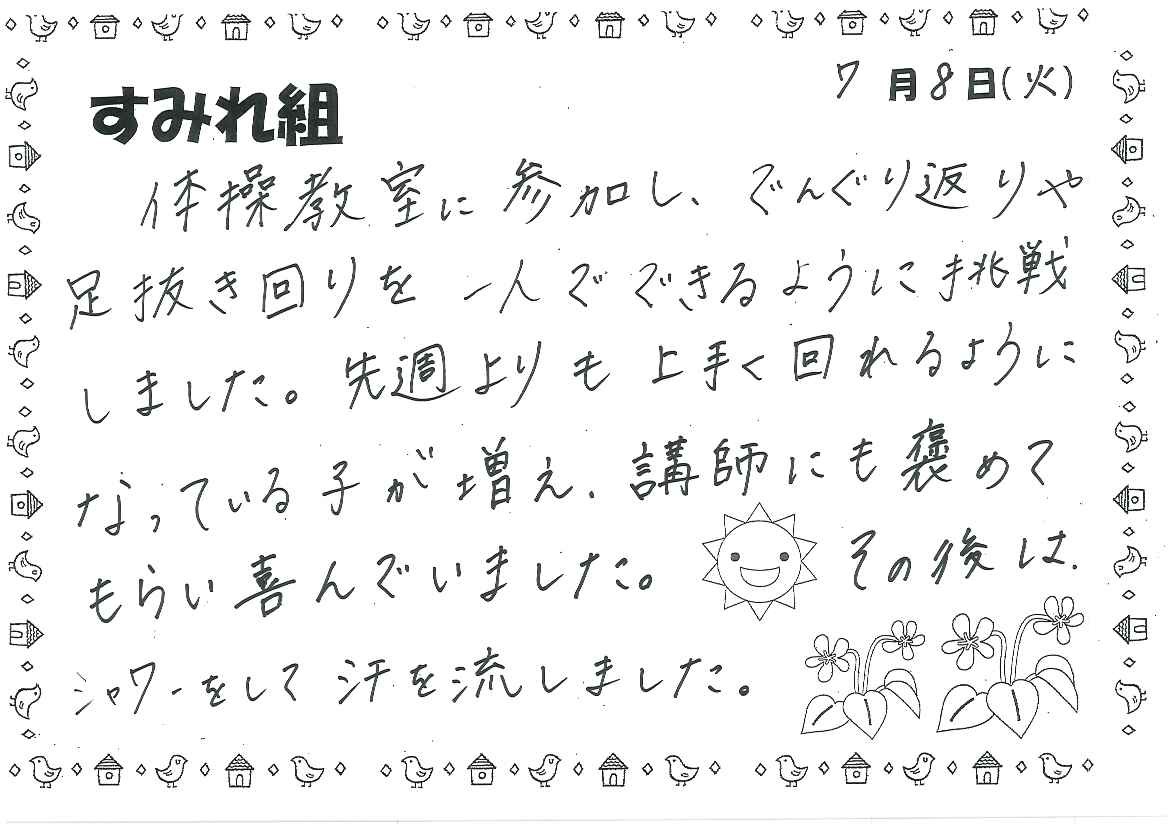 すみれ組
7月8日(火)
体操教室に参加し、でんぐり返りや
足抜き回りを一人でできるように挑戦
しました。先週よりも上手く回れるように
なっている子が増え、講師にも褒めて
もらい喜んでいました。その後は、
シャワーをして汗を流しました。